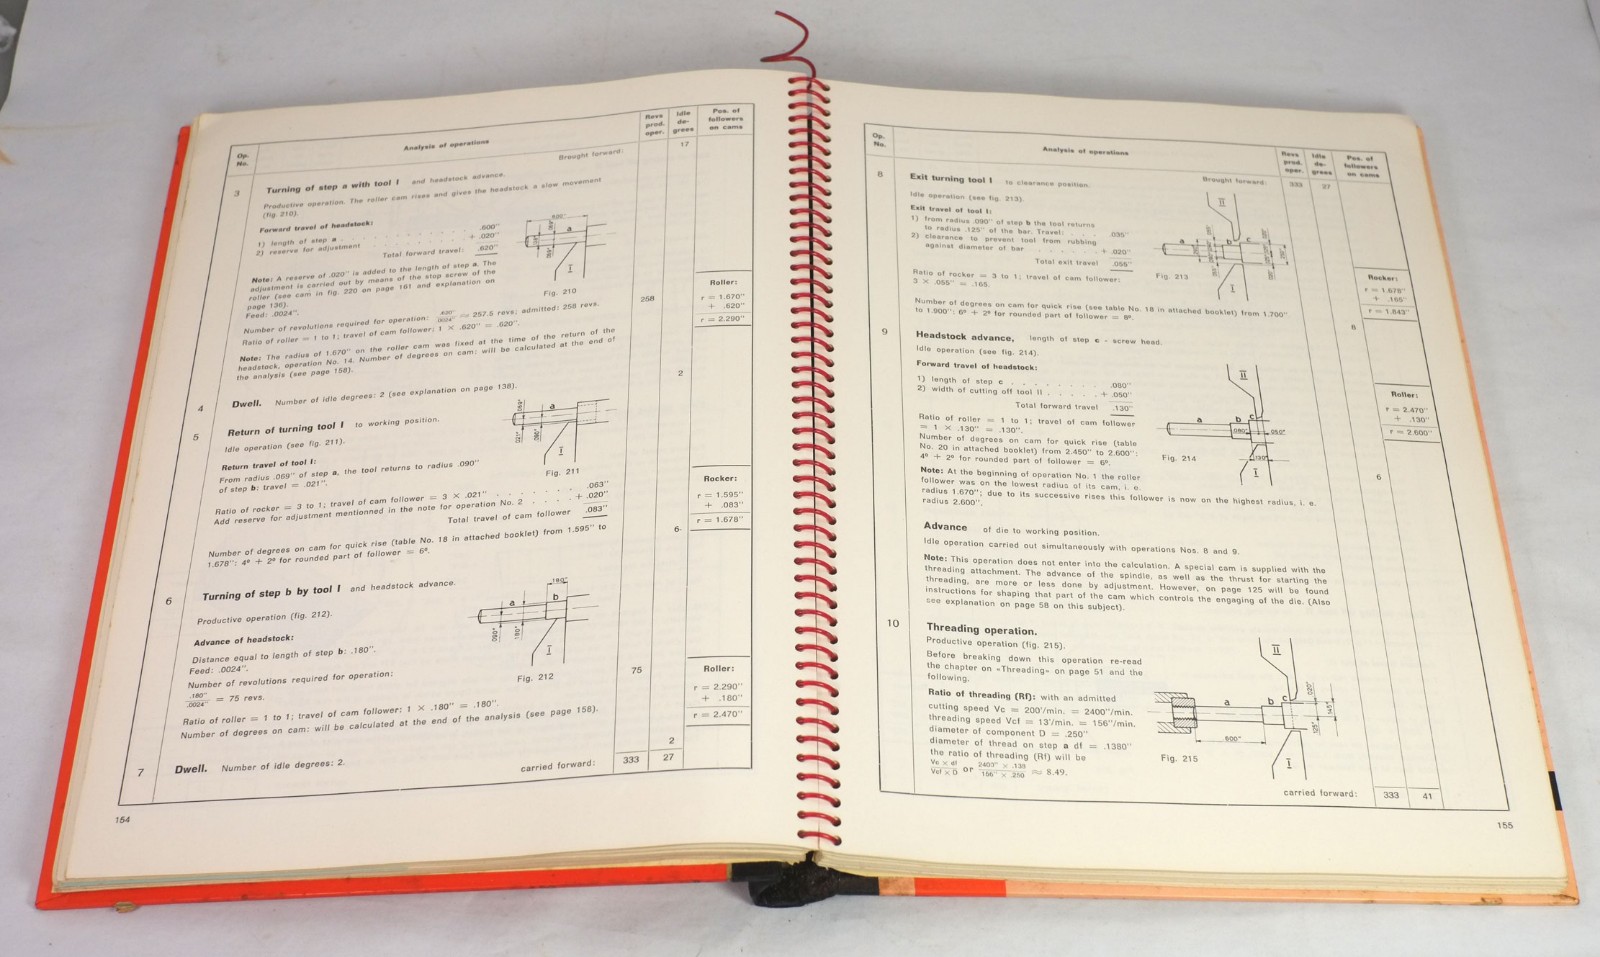 Op.
No.
Analysis of operations
Revs
prod.
oper.
Idle
de-
grees
Pos. of
followers
on cams
Brought forward:
17
3
Turning of step a with tool I and headstock advance.
Productive operation. The roller cam rises and gives the headstock a slow movement
(fig. 210).
Forward travel of headstock:
1) length of step a . . . . . . . . . . . . .600"
2) reserve for adjustment + .020"
Total forward travel: .620"
Note: A reserve of .020" is added to the length of step a. The
adjustment is carried out by means of the stop screw of the
roller (see cam in fig. 220 on page 161 and explanation on
page 136).
Feed: .0024".
Fig. 210
Number of revolutions required for operation: .620" / .0024" ≈ 257.5 revs; admitted: 258 revs.
258
Ratio of roller = 1 to 1; travel of cam follower: 1 × .620" = .620".
Roller:
r = 1.670"
+ .620"
r = 2.290"
Note: The radius of 1.670" on the roller cam was fixed at the time of the return of the
headstock, operation No. 14. Number of degrees on cam: will be calculated at the end of
the analysis (see page 158).
4
Dwell. Number of idle degrees: 2 (see explanation on page 138).
2
5
Return of turning tool I to working position.
Idle operation (see fig. 211).
Return travel of tool I:
From radius .069" of step a, the tool returns to radius .090"
of step b: travel = .021".
Fig. 211
Ratio of rocker = 3 to 1; travel of cam follower = 3 × .021" . . . . . . . .063"
Add reserve for adjustment mentionned in the note for operation No. 2 . . . . + .020"
Total travel of cam follower .083"
Rocker:
r = 1.595"
+ .083"
r = 1.678"
Number of degrees on cam for quick rise (table No. 18 in attached booklet) from 1.595" to
1.678": 4° + 2° for rounded part of follower = 6°.
6
6
Turning of step b by tool I and headstock advance.
Productive operation (fig. 212).
Advance of headstock:
Distance equal to length of step b: .180".
Feed: .0024".
Number of revolutions required for operation:
.180" / .0024" = 75 revs.
Fig. 212
75
Ratio of roller = 1 to 1; travel of cam follower: 1 × .180" = .180".
Number of degrees on cam: will be calculated at the end of the analysis (see page 158).
Roller:
r = 2.290"
+ .180"
r = 2.470"
7
Dwell. Number of idle degrees: 2.
2
carried forward:
333
27
154
Op.
No.
Analysis of operations
Revs
prod.
oper.
Idle
de-
grees
Pos. of
followers
on cams
Brought forward:
333
27
8
Exit turning tool I to clearance position.
Idle operation (see fig. 213).
Exit travel of tool I:
1) from radius .090" of step b the tool returns
to radius .125" of the bar. Travel: . . . .035"
2) clearance to prevent tool from rubbing
against diameter of bar . . . . . . . + .020"
Total exit travel .055"
Ratio of rocker = 3 to 1; travel of cam follower:
3 × .055" = .165.
Fig. 213
Number of degrees on cam for quick rise (see table No. 18 in attached booklet) from 1.700"
to 1.900": 6° + 2° for rounded part of follower = 8°.
8
Rocker:
r = 1.678"
+ .165"
r = 1.843"
9
Headstock advance, length of step c - screw head.
Idle operation (see fig. 214).
Forward travel of headstock:
1) length of step c . . . . . . . . . .080"
2) width of cutting off tool II . . . . . + .050"
Total forward travel .130"
Ratio of roller = 1 to 1; travel of cam follower
= 1 × .130" = .130".
Number of degrees on cam for quick rise (table
No. 20 in attached booklet) from 2.450" to 2.600":
4° + 2° for rounded part of follower = 6°.
Fig. 214
6
Roller:
r = 2.470"
+ .130"
r = 2.600"
Note: At the beginning of operation No. 1 the roller
follower was on the lowest radius of its cam, i. e.
radius 1.670"; due to its successive rises this follower is now on the highest radius, i. e.
radius 2.600".
Advance of die to working position.
Idle operation carried out simultaneously with operations Nos. 8 and 9.
Note: This operation does not enter into the calculation. A special cam is supplied with the
threading attachment. The advance of the spindle, as well as the thrust for starting the
threading, are more or less done by adjustment. However, on page 125 will be found
instructions for shaping that part of the cam which controls the engaging of the die. (Also
see explanation on page 58 on this subject).
10
Threading operation.
Productive operation (fig. 215).
Before breaking down this operation re-read
the chapter on «Threading» on page 51 and the
following.
Ratio of threading (Rf): with an admitted
cutting speed Vc = 200'/min. = 2400"/min.
threading speed Vcf = 13'/min. = 156"/min.
diameter of component D = .250"
diameter of thread on step a df = .1380"
the ratio of threading (Rf) will be
Vc × df / Vcf × D or 2400" × .138 / 156" × .250 ≈ 8.49.
Fig. 215
carried forward:
333
41
155